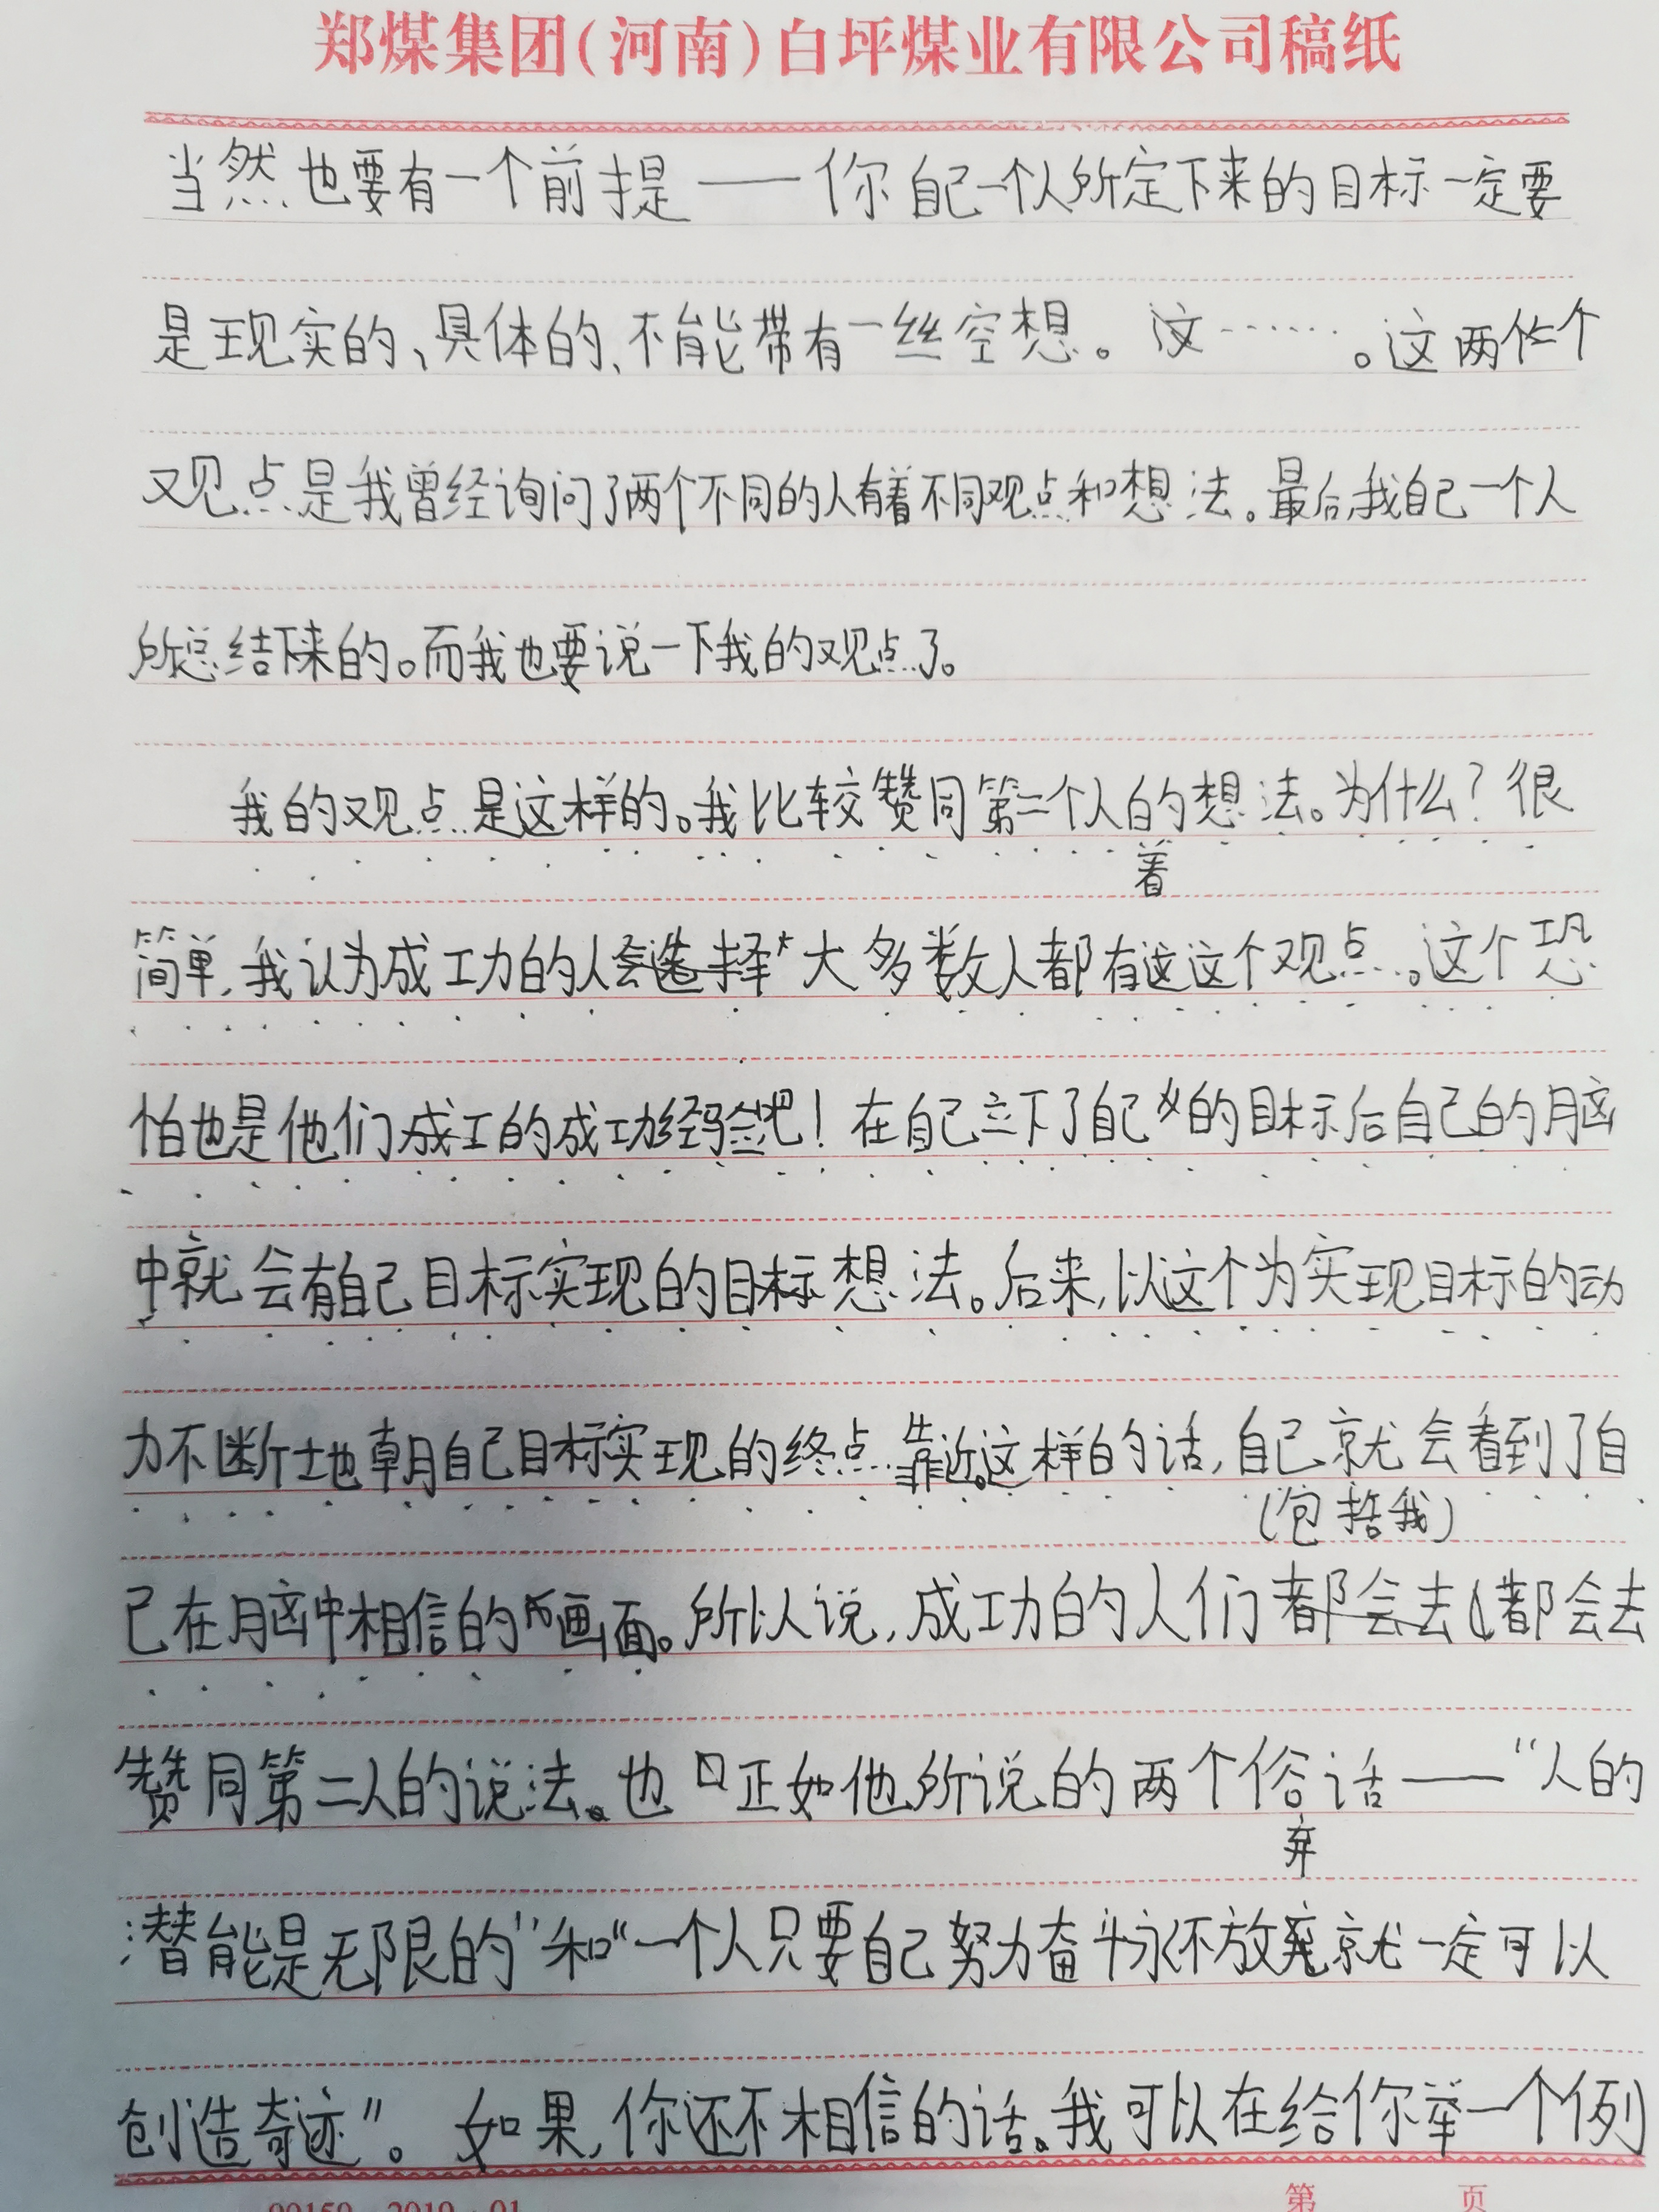 郑煤集团(河南)白坪煤业有限公司稿纸
当然也要有一个前提——你自己一个人所定下来的目标一定要
是现实的、具体的、不能带有一丝空想。这……。这两个
观点是我曾经询问了两个不同的人有着不同观点和想法。最后,我自己一个人
所总结下来的。而我也要说一下我的观点了。
我的观点是这样的。我比较赞同第二个人的想法。为什么?很
着
简单,我认为成功的人会选择大多数人都有这这个观点。这个恐
怕也是他们成工的成功经验吧!在自己立下了自己的目标后自己的脑
中就会有自己目标实现的目标想法。后来,以这个为实现目标的动
力不断地朝自己目标实现的终点靠近。这样的话,自己就会看到了自
(包括我)
己在脑中相信的画面。所以说,成功的人们都会去都会去
赞同第二人的说法。也正如他所说的两个俗话——“人的
弃
潜能是无限的”和“一个人只要自己努力奋斗永不放就一定可以
创造奇迹”。如果,你还不相信的话。我可以在给你举一个例
00159 2019·01
第 页